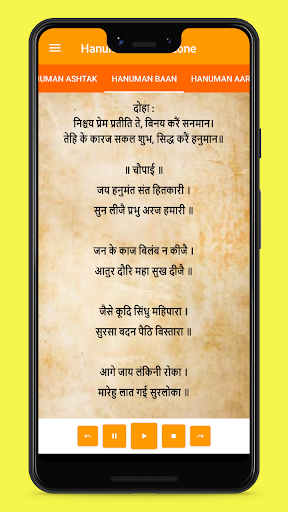 Hanum one
UMAN ASHTAK HANUMAN BAAN HANUMAN AAR
दोहा :
निश्चय प्रेम प्रतीति ते, बिनय करैं सनमान।
तेहि के कारज सकल शुभ, सिद्ध करैं हनुमान॥
॥ चौपाई ॥
जय हनुमंत संत हितकारी ।
सुन लीजै प्रभु अरज हमारी ॥
जन के काज बिलंब न कीजै ।
आतुर दौरि महा सुख दीजै ॥
जैसे कूदि सिंधु महिपारा ।
सुरसा बदन पैठि बिस्तारा ॥
आगे जाय लंकिनी रोका ।
मारेहु लात गई सुरलोका ॥